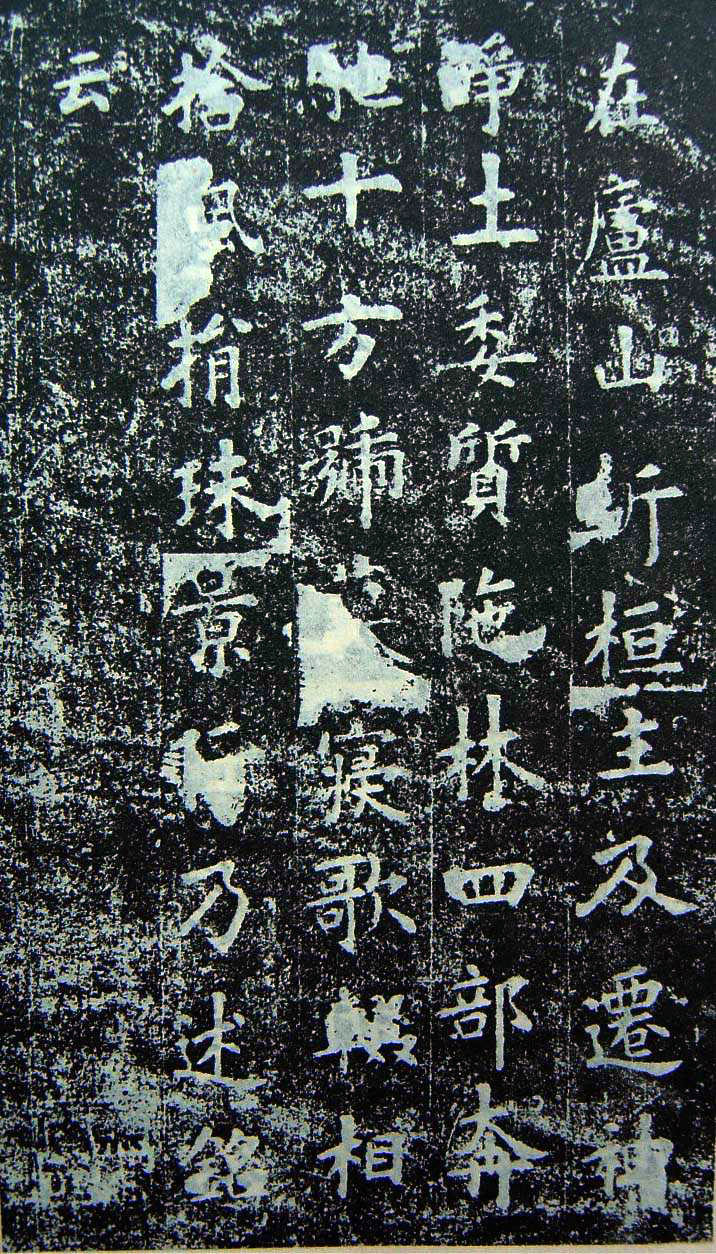 在廬山折桓主及遷神
淨土委質陁林四部奔
馳十方號寢歌輟相
捨風捐珠景行乃述銘
云